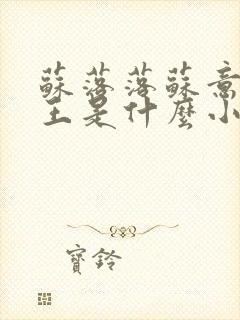 蘇落落蘇意
王是什麼小
寶鈴